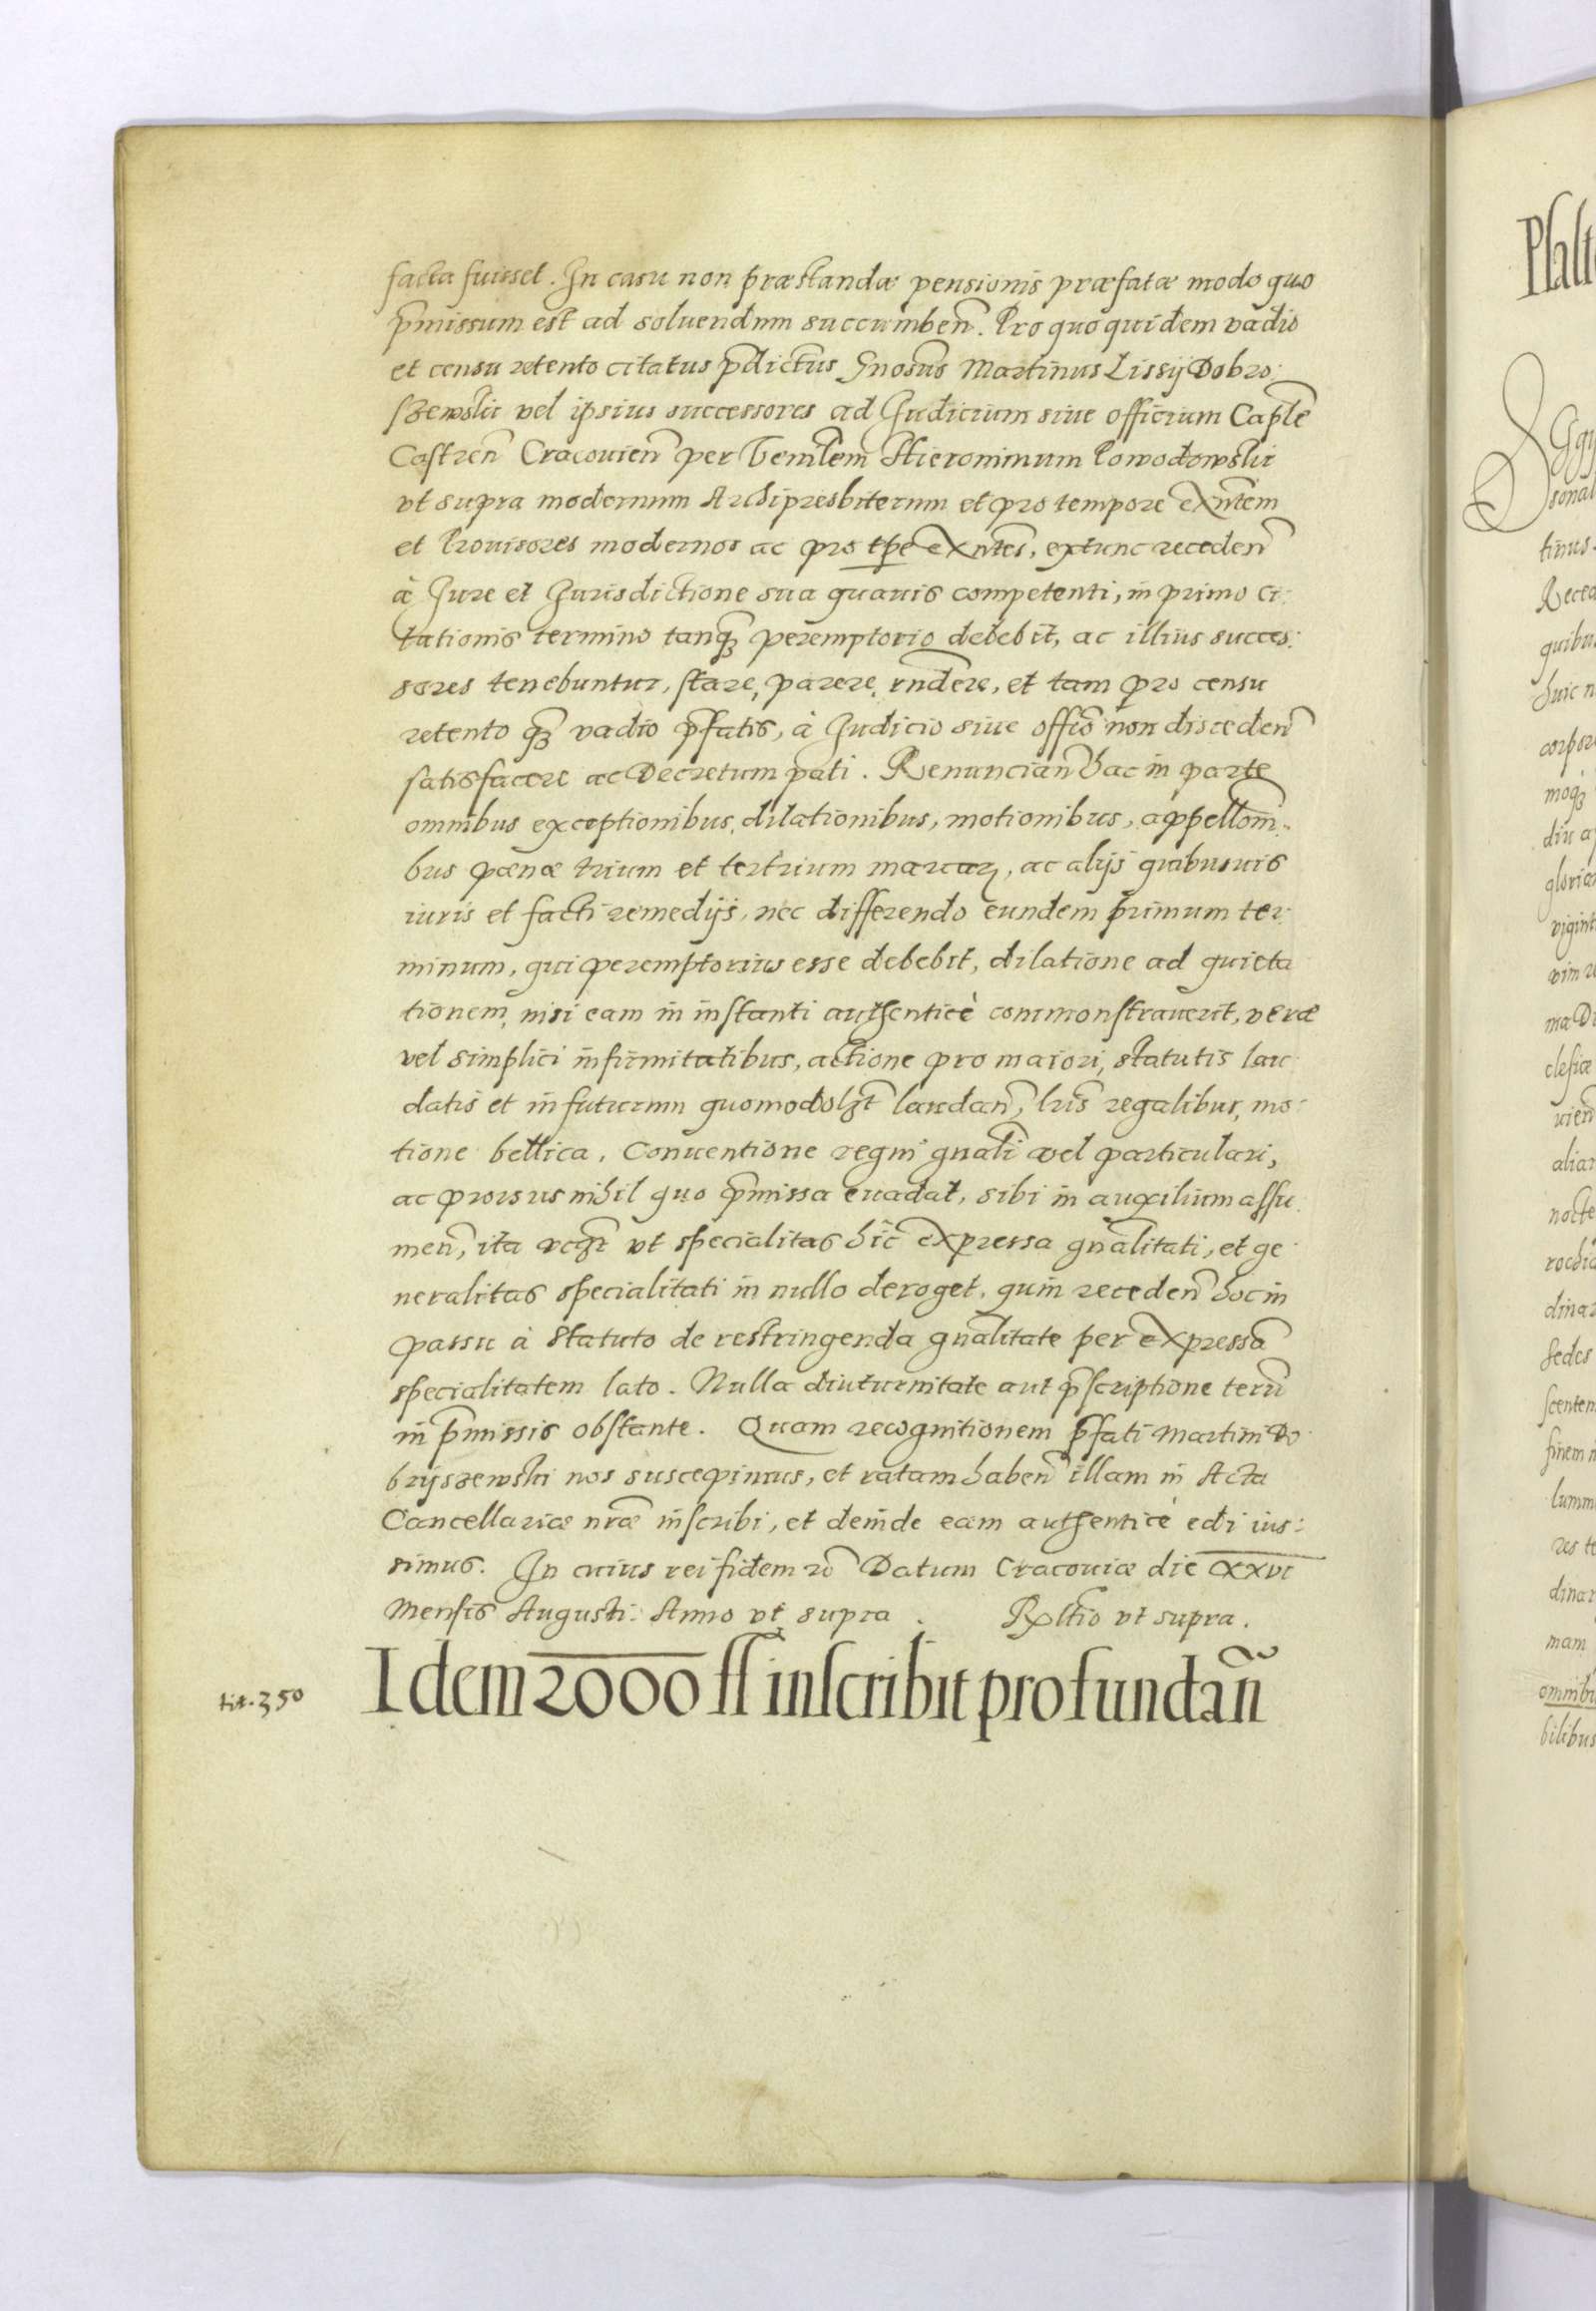 facta fuisset. In casu non præstandæ pensionis præfatæ modo quo
p̄missum est ad soluendum succumben̄. Pro quo quidem vadio
et censu retento citatus p̄dictus Gn̄osus Martinus Lissÿ Dobro:
szewski vel ipsius successores ad Judicium siue officium Cap̄le
Castren̄ Cracouien̄ per Ven̄lem Hieronimum Powodowski
vt supra modernum Archipresbiterum et pro tempore exn̄tem
et Prouisores modernos ac pro tp̄e exn̄tes, extunc receden̄
à Jure et Jurisdictione sua quauis competenti, in primo ci:
tationis termino tanqȝ peremptorio debebit, ac illius succes:
sores tenebuntur, stare, parere, rn̄dere, et tam pro censu
retento qȝ vadio p̄fatis, à Judicio siue offīo non disceden̄
satisfacere ac Decretum pati. Renuncian̄ hac in parte
omnibus exceptionibus, dilationibus, motionibus, appellōni:
bus pœnæ trium et tertrium marcarꝝ, ac alijs quibusuis
iuris et facti remedijs, nec differendo eundem primum ter:
minum, qui peremptorius esse debebit, dilatione ad quieta
tionem, nisi eam in instanti authenticè commonstrauerit, veræ
vel simplici infirmitatibus, actione pro maiori, statutis lau:
datis et in futurum quomodolȝt laudan̄, lr̄is regalibus, mo:
tione bellica, Conuentione regni gn̄ali vel particulari,
ac prorsus nihil quo p̄missa euadat, sibi in auxilium assu:
men̄, ita vtqȝ vt specialitas hic expressa gn̄alitati, et ge:
neralitas specialitati in nullo deroget, quin receden̄ hoc in
passu à statuto de restringenda gn̄alitate per expressā
specialitatem lato. Nulla diuturnitate aut p̄scriptione terrū
in p̄missis obstante. Quam recognitionem p̄fati Martini Do:
brÿszewski nos suscepimus, et ratam haben̄ illam in Acta
Cancellariæ nr̄æ inscribi, et deinde eam authenticè edi ius:
simus. In cuius rei fidem rō Datum Cracouiæ die xxvi
Mensis Augusti. Anno vt supra. Rx̄ltio vt supra.
tit. 350
Idem 2000 ff inscribit pro fundān